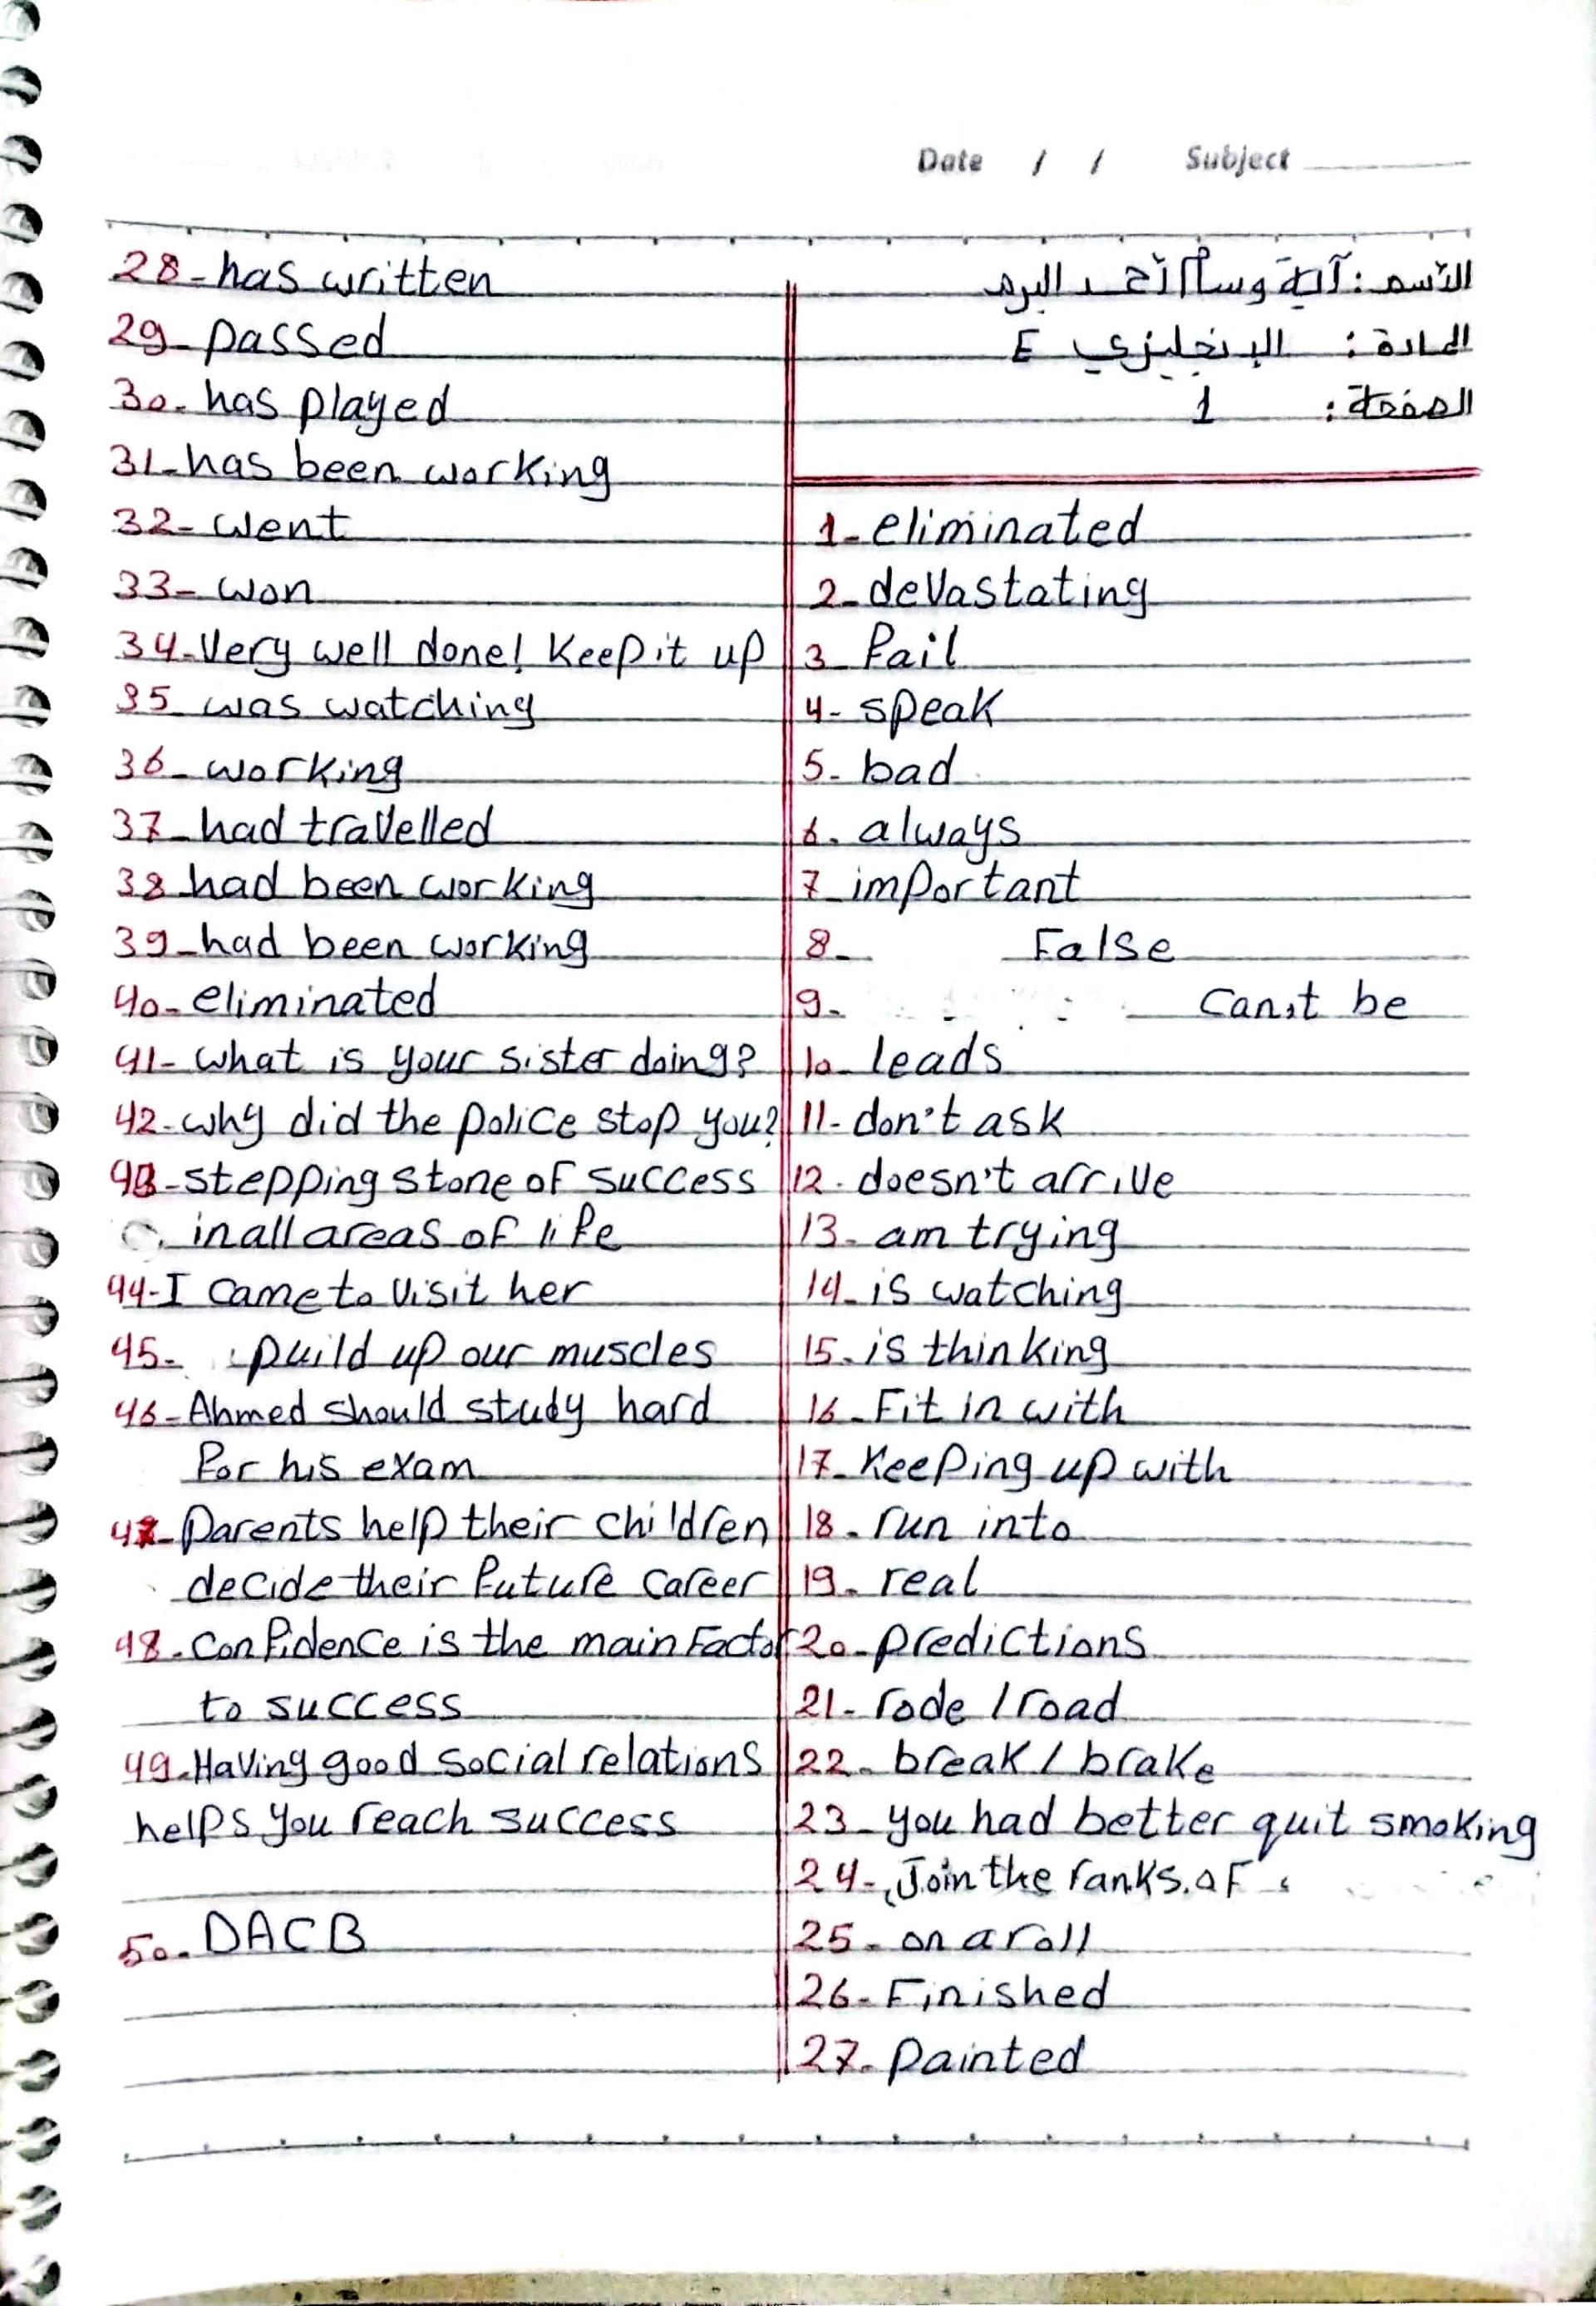 Date / / Subject
الأسم : آية وسام أحمد البرم
المادة : الإنجليزي E
الصفحة : 1
1- eliminated
2- devastating
3- fail
4- speak
5- bad
6- always
7- important
8- False
9- Can,t be
10- leads
11- don't ask
12- doesn't arrive
13- am trying
14- is watching
15- is thinking
16- Fit in with
17- Keeping up with
18- run into
19- real
20- predictions
21- rode / road
22- break / brake
23- you had better quit smoking
24- Join the ranks of
25- on a roll
26- Finished
27- painted
28- has written
29- passed
30- has played
31- has been working
32- went
33- won
34- Very well done! Keep it up
35- was watching
36- working
37- had travelled
38- had been working
39- had been working
40- eliminated
41- what is your sister doing?
42- why did the police stop you?
43- stepping stone of success
in all areas of life
44- I came to visit her
45- puild up our muscles
46- Ahmed should study hard
for his exam
47- parents help their children
decide their future career
48- confidence is the main Factor
to success
49- Having good social relations
helps you reach success
50- DACB